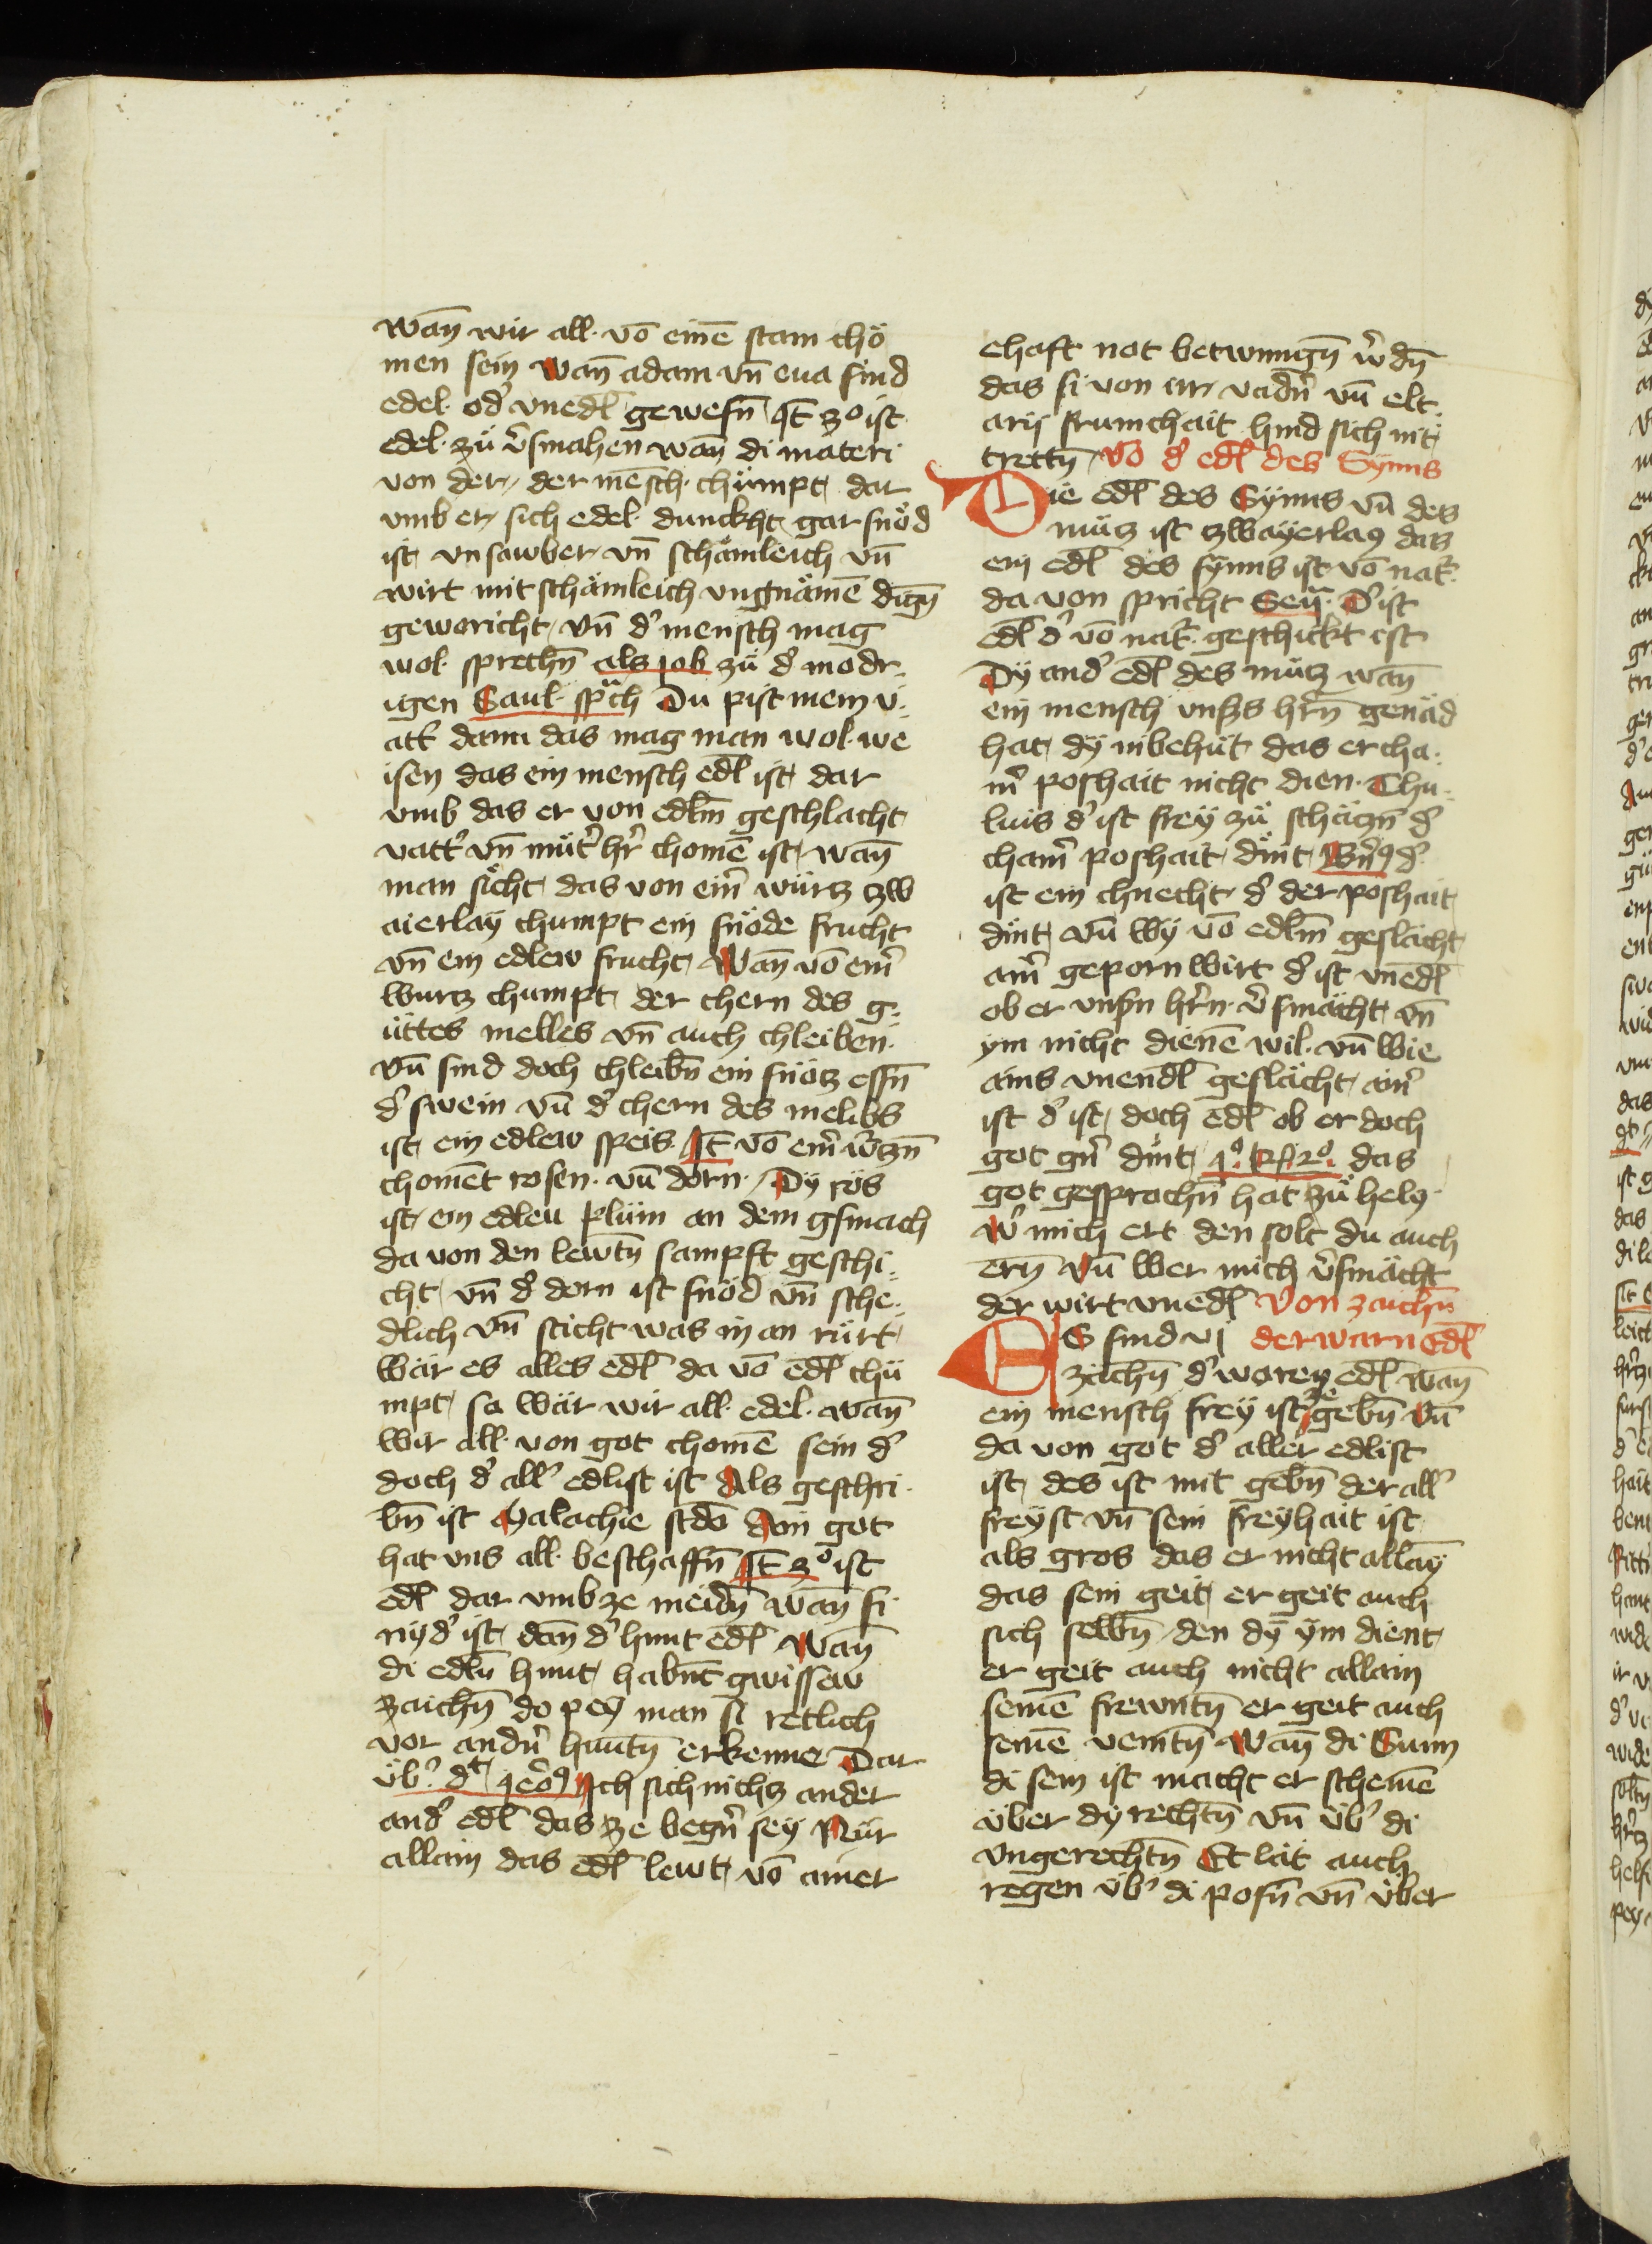 wañ wir all· võ einē stam chö
men sein wañ adam vñ eua sind
edel· od̛ vnedl̄ gewesn̄ It̄ zº ist
edel· zü v̛smahen wañ di materi
von der der mēsch chümpt dar
vmb er sich edel· dunckht gar snöd
ist vnsawber vñ schämleich vñ
wirt mit schämleich vngnämē dign̄
geworicht vñ d̛ mensch mag
wol· sprechn̄ als iob zü d̛ modr⸗
igen Saul· spͣch Du pist mein v⸗
att̛ dann das mag man wol· we
isen das ein mensch edl̄ ist dar
vmb das er von edlm̄ geschlacht
vatt̛ vñ müt̛ hr̛ chomē ist wañ
man sicht das von ein̛ würtz zw
aierlaÿ chumpt ein snöde frucht
vñ ein edlew frucht Wañ võ ein̛
wurtz chumpt der chern des g⸗
üttes melles vñ auch chleiben·
vñ sind doch chleibn̄ ein snötz essn̄
d̛ swein vñ d̛ chern des melibs
ist ein edlew speis It̄ võ ein̛ w̛tzn̄
chomēt rosen· vñ dorn· Dÿ rös
ist ein edleu plüm an dem gsmach
da von den lewtn̄ sampft geschi⸗
cht vñ d̛ dorn ist snöd vñ sche⸗
dlich vñ sticht was in an rürt
Wär es alles edl̄ da võ edl̄ chü
mpt so wär wir all· edel· wañ
wir all· von got chomē sein d̛
doch d̛ all̛ edlist ist Als geschri·
bn̄ ist Malachie scdõ Ain got
hat vns all· beschaffn̄ It̄ zº ist
edl̄ dar vmb ze meidn̄ wañ si
nÿd̛ ist dañ d̛ hunt edl̄ Wañ
di edln̄ hunt habn̄t gwissew
zaichn̄ do peÿ man si retlich
vor andn̛ huntn̄ erkenne Dar
üb̛ dt̛ Ieõ9 Ich sich nichtz ander
and̛ edl̄ das ze begn̛ seÿ Nür
allain das edl̄ lewt võ ainer
ehaft not betwungn̄ w̛dn̄
das si von irr vadn̛ vñ elt⸗
arÿ frumchait hind sich nit
trettn̄ Võ d̛ edl̄ des Synns
Die edl̄ des Sÿnns vñ des
mütz ist zwaÿerlaÿ daz
ein edl̄ des sÿnns ist võ nat̛
da von spricht Sen̄ D̛ ist
edl̄ d̛ võ nat̛ geschickt ist
Dÿ and̛ edl̄ des mütz wañ
ein mensch vnsers hr̛n̄ genäd
hat dÿ in behüt das er cha⸗
in̛ poshait nicht dien· Thu⸗
luis d̛ ist freÿ zü schätzn̄ d̛
chain̛ poshait dint Bn̛9 d̛
ist ein chnecht d̛ der poshait
dint vñ wÿ võ edlm̄ geslächt
ain̛ geporn wirt d̛ ist vnedl̄
ob er vnsn̄ hr̛n· v̛smächt vñ
ÿm nicht dienē wil· vñ wie
ains vnendl̄ geslächt ain̛
ist d̛ ist doch edl̄ ob er doch
got gn̛ dint 1º R̨ 2º das
got gesprochn̄ hat zü hely·
W̛ mich ert den solt du auch
ern̄ vñ wer mich v̛smächt
der wirt vnedl̄ Von zaichn̄
ES sind vi derwarn edl̄
zaichn̄ d̛ woren edl̄ wañ
ein mensch freÿ ist ze gebn̄ vñ
da von got d̛ aller edlist
ist des ist mit gebn̄ der all̛
freÿst vñ sein freÿhait ist
als gros das er nicht allaÿ
das sein geit er geit auch
sich selbn̄ den dÿ ÿm dient
er geit auch nicht allain
seinē frewntn̄ er geit auch
seinē veintn̄ Wañ di Sunn
di sein ist macht er scheinē
über dÿ rechtn̄ vñ üb̛ di
vngerechtn̄ Et lät auch
regen üb̛ di posn̄ vñ über